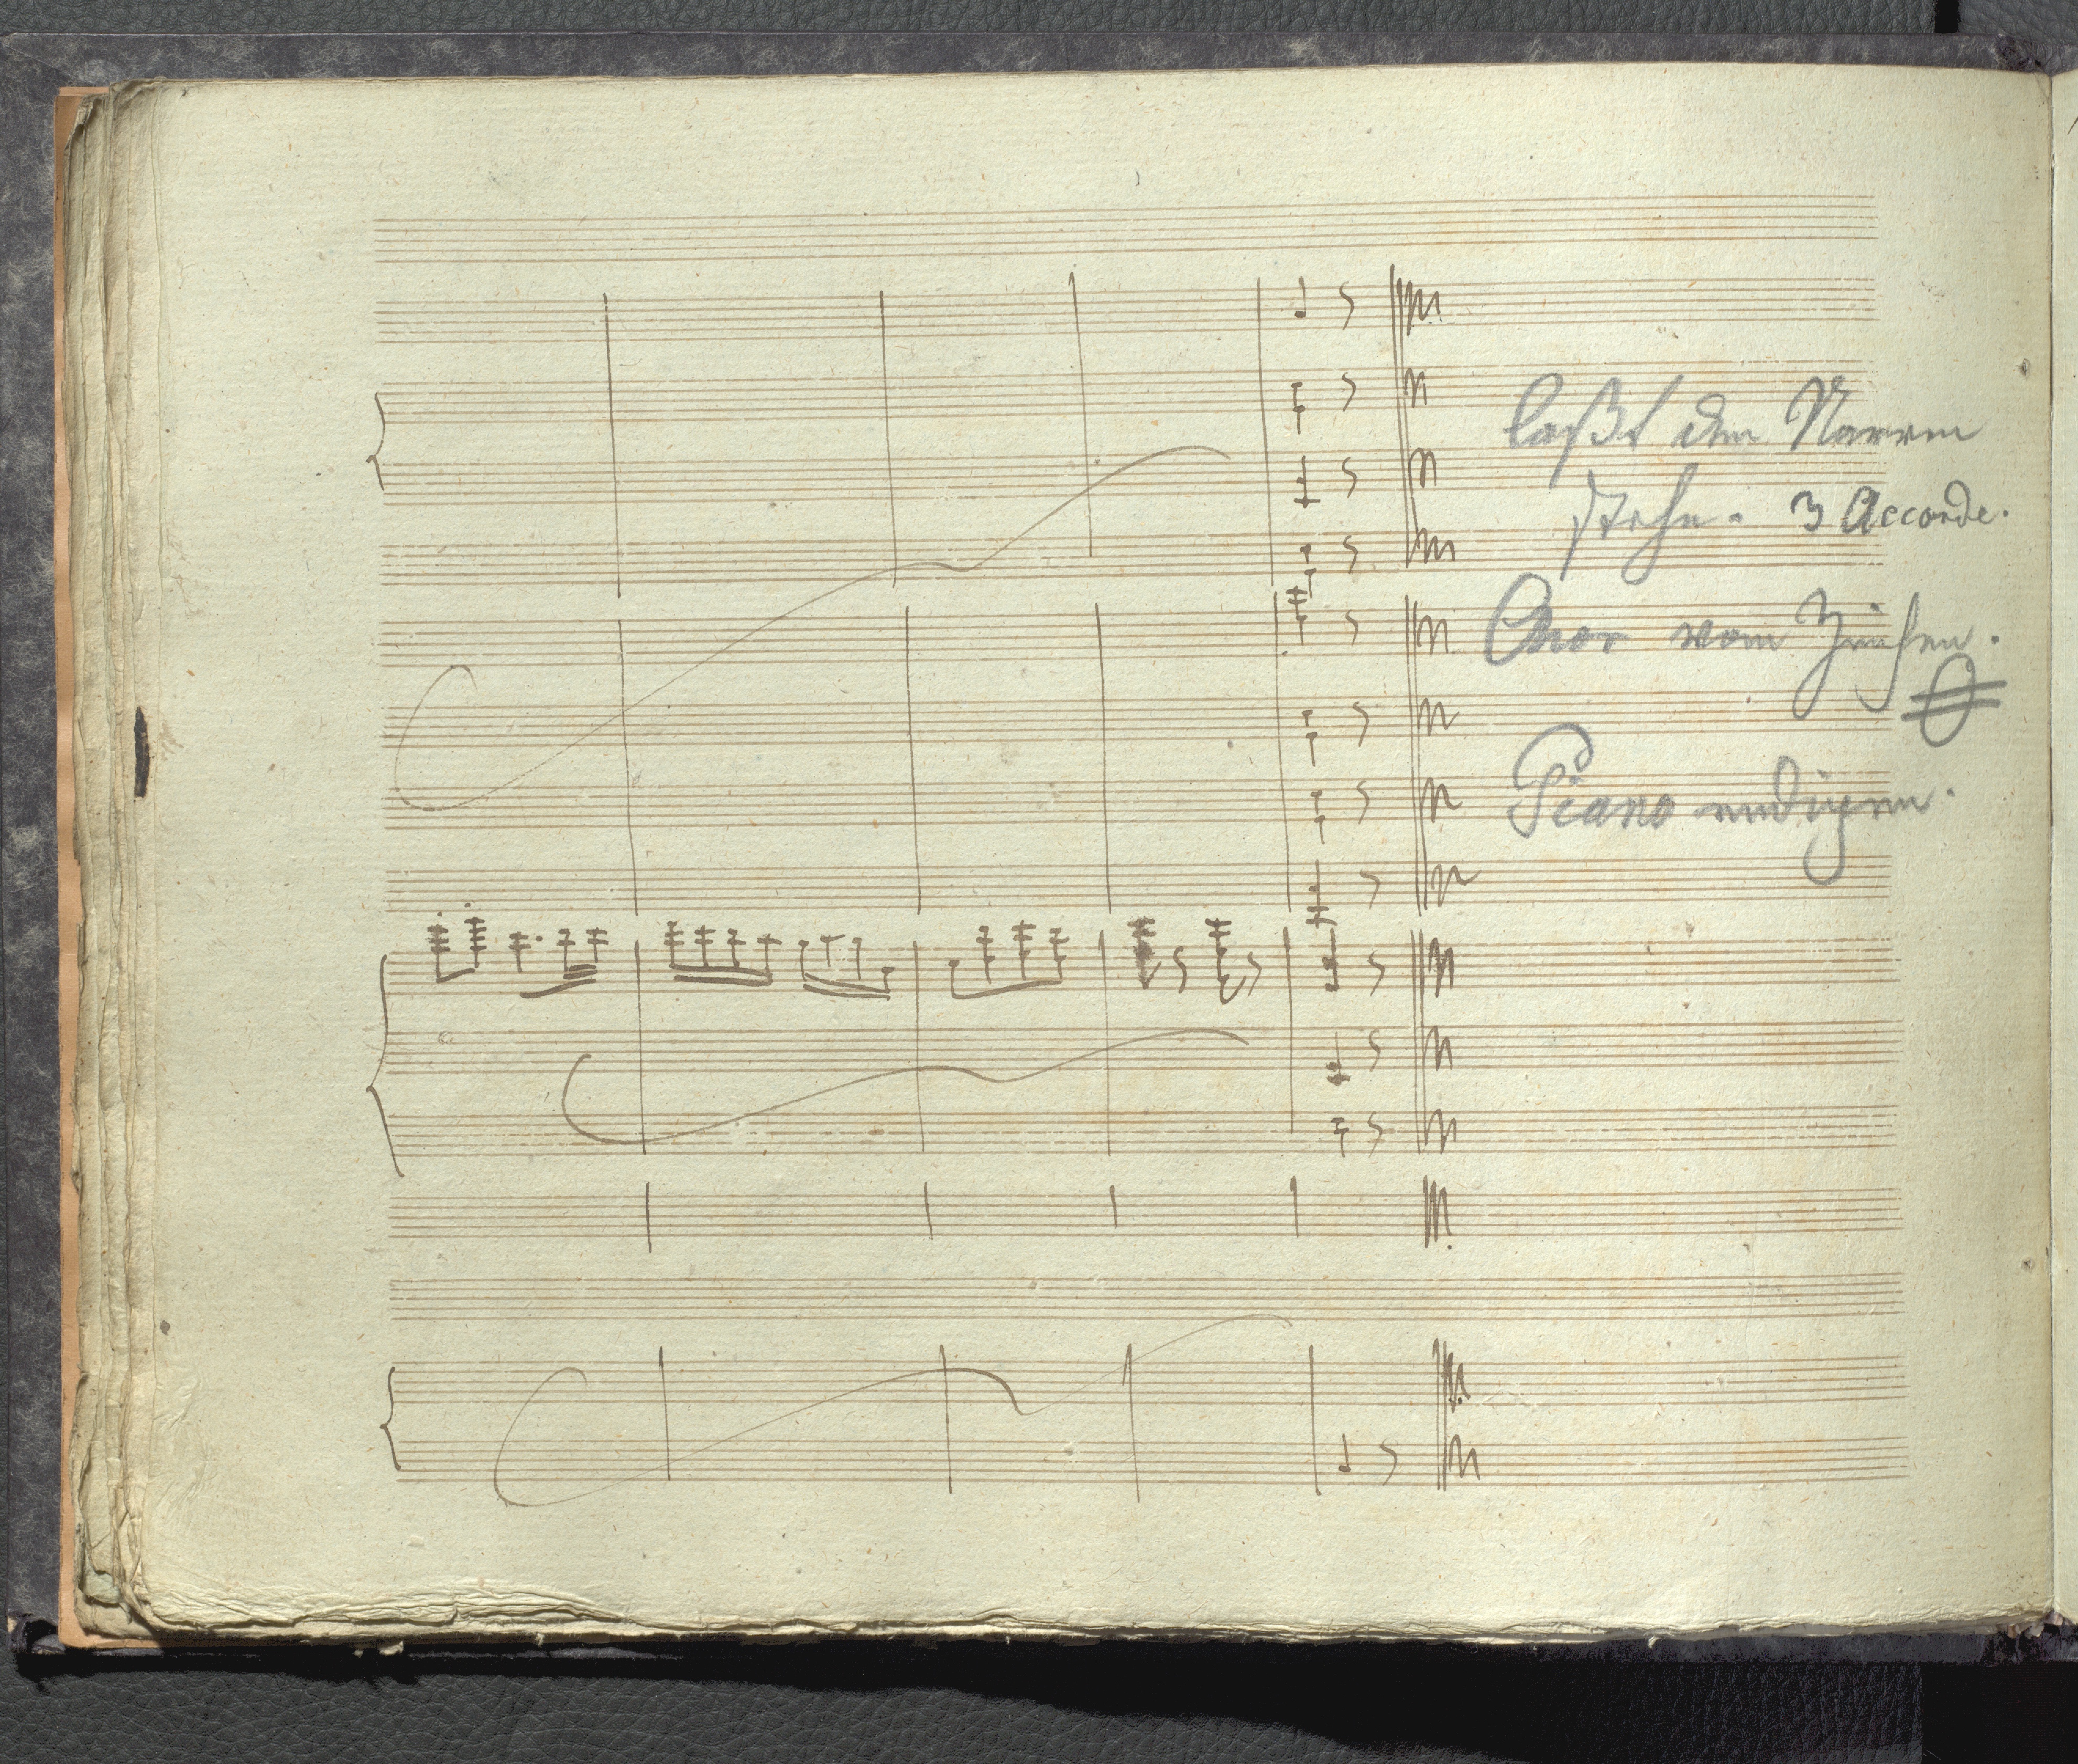 laßt den Narren
stehn. 3 Accorde.
Chor vom Ziehen.
Piano endigen.